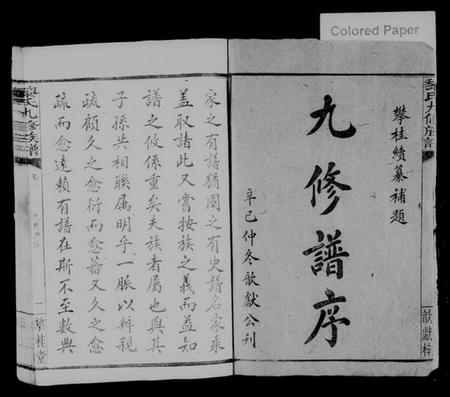 Colored Paper
九修族譜
攀桂續纂補題
九修譜序
辛巳仲冬歆獻公刊
歆獻
家之有譜猶國之有史譜名家乘
蓋取諸此又嘗按族之義而益知
譜之攸係重矣夫族者屬也與其
子孫共相聯屬明乎一脈以辨親
疏顧久之愈衍而愈蕃又久之愈
疏而愈遠賴有譜在斯不至數典
氏九修族譜
攀桂堂